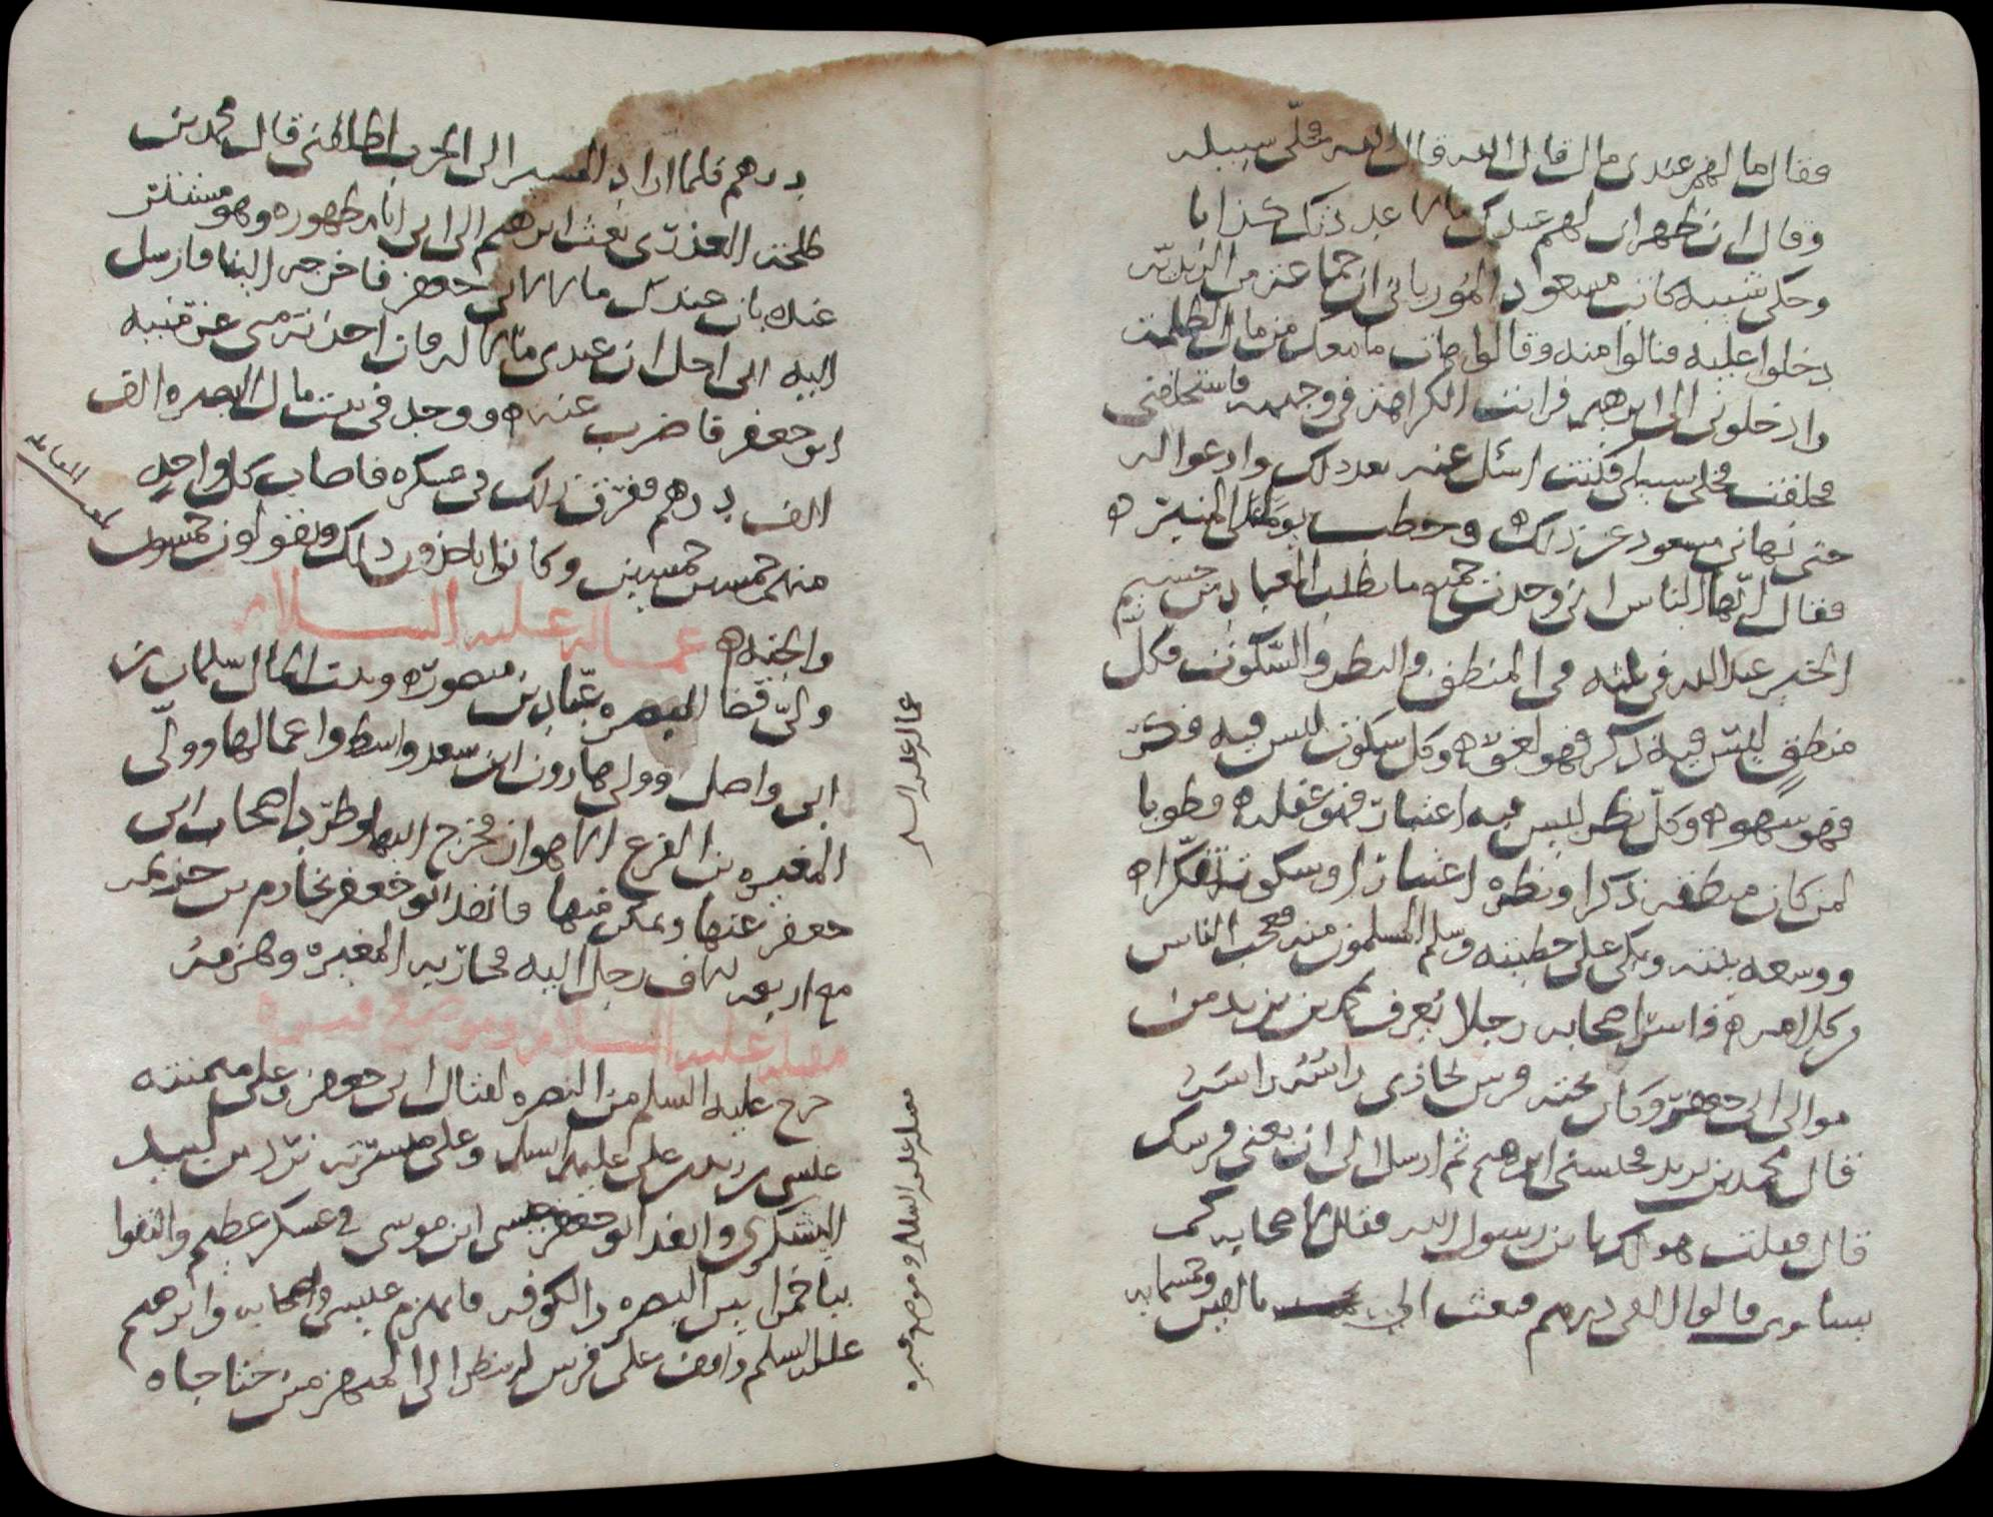 فقال ما لهم عندي مال قال الله قال الله فخلى سبيله
وقال ان ظهر ان لهم عندك مالا عددتك كذابا
وحكى شبيبه كاتب مسعود المورياني ان جماعة من الزيدية
دخلوا عليه فنالوا منه وقالوا هات ما معك من مال الظلمة
وادخلوني الى ابرهيم فرايت الكراهة في وجهه فاستحلفني
فحلفت فخلى سبيلي فكنت اسئل عنه بعد ذلك وادعوا له
حتى نهاني مسعود عن ذلك وخطب يوما على المنبر
فقال ايها الناس اني وجدت جميع ما يطلب العباد من جسيم
الخير عند الله في ثلثه في المنطق والنظر والسكوت فكل
منطق ليس فيه ذكر فهو لغو وكل سكوت ليس فيه فكر
فهو سهو وكل نظر ليس فيه اعتبار فهو غفله فطوبا
لمن كان منطقه ذكرا ونظره اعتبارا وسكوته تفكرا
ووسعه بيته وبكى على خطيته وسلم المسلمون منه فعجب الناس
من كلامه فاسر اصحابه رجلا يعرف بمحمد بن يزيد من
موالى ابي جعفر وكان تحته فرس يحاذي راسه راسه
قال محمد بن يزيد فحبسني ابرهيم ثم ارسل الى ان بعني فرسك
قال فقلت هو لك يا بن رسول الله فقال لاصحابه كم
يساوي قالوا الفي درهم فبعث الي بالفين وخمسمايه
درهم فلما اراد المسير الى الحرب اطلقني قال محمد بن
طلحة العذري بعث ابرهيم الى ابي ايام ظهوره وهو مستتر
عنده بان عندك مالا لابي جعفر فاخرجه الينا فارسل
اليه ابي اجل ان عندي مالا له فان اخذته مني غرمنيه
ابو جعفر فاضرب عنه ووجد في بيت مال البصره الف
الف درهم ففرق ذلك في عسكره فاصاب كل واحد
منهم خمسين خمسين وكانوا ياخذون ذلك ويقولون خمسون
والجنه
عماله عليه السلام
ولى قضا البصره عباد بن منصور وبيت المال سليمان بن
ابي واصل وولى هارون ابن سعد واسط واعمالها وولى
المغيره بن الفزع الاهواز فخرج اليها وطرد اصحاب ابي
جعفر عنها وتمكن فيها فانفذ ابو جعفر بخازم بن خزيمه
مع اربعه الاف رجل اليه فحاربه المغيره وهزمه
مقتله عليه السلام وموضع قبره
خرج عليه السلم من البصره لقتال ابي جعفر وعلى ميمنته
عيسى بن زيد بن علي عليهم السلم وعلى ميسرته برد بن لبيد
اليشكري وانفذ ابو جعفر عيسى ابن موسى في عسكر عظيم والتقوا
بباخمرا بين البصره والكوفه فانهزم عيسى واصحابه وابرهيم
عليه السلم واقف على فرس له ينظر الى المنهزمين حتا جاه
عماله عليه السلم
مقتله عليه السلام وموضع قبره